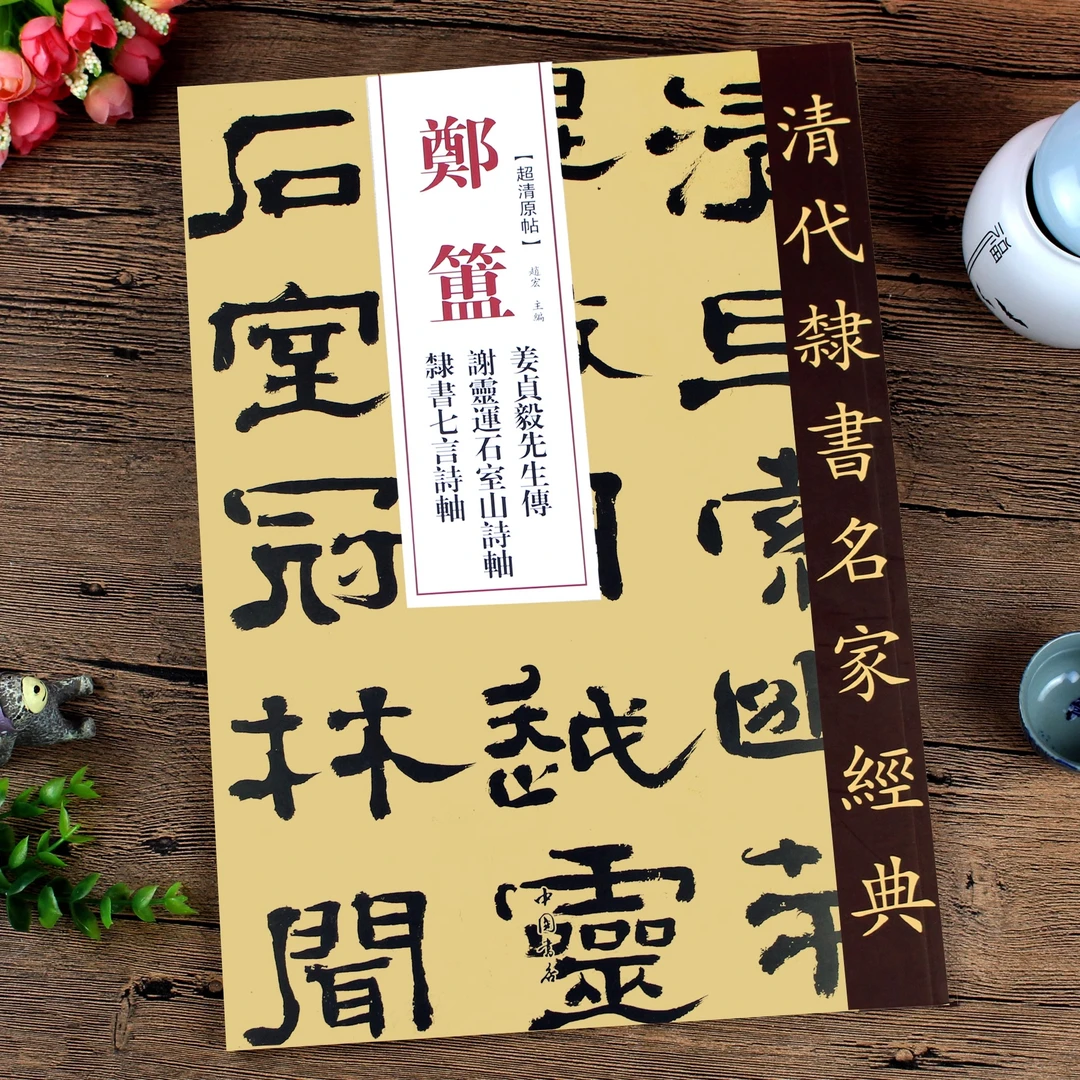 清代隸書名家經典
清旦索幽
越靈
石室冠林聞
【超清原帖】
鄭簠
趙宏 主編
姜貞毅先生傳
謝靈運石室山詩軸
隸書七言詩軸
中国書店